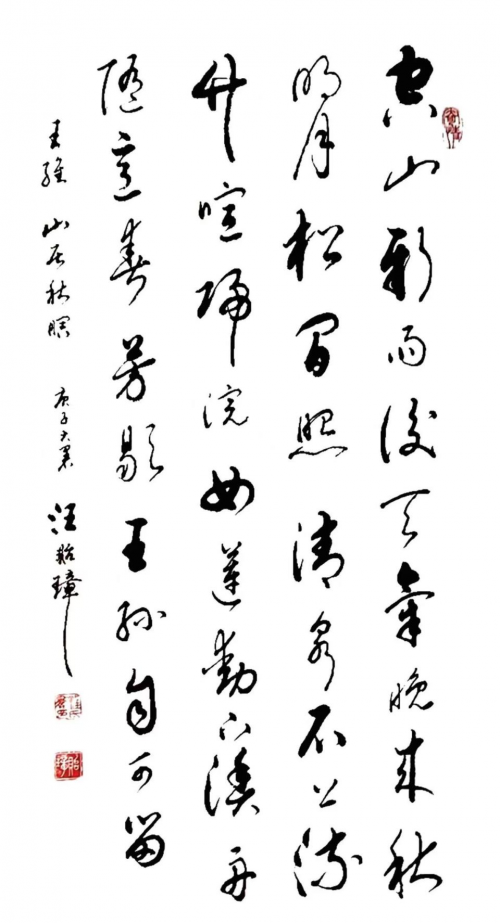 空山新雨後天氣晚來秋
明月松間照清泉石上流
竹喧歸浣女蓮動下漁舟
隨意春芳歇王孫自可留
王維 山居秋暝 庚子大暑 汪璋